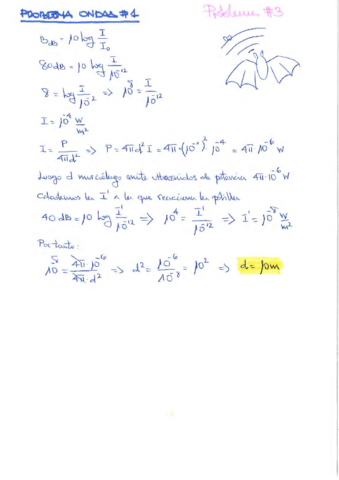 PROBLEMA ONDAS #1
Problema #3
B_dB = 10 log I/I₀
80 dB = 10 log I/10⁻¹²
8 = log I/10⁻¹² => 10⁸ = I/10⁻¹²
I = 10⁻⁴ W/m²
I = P/4πd² => P = 4πd² I = 4π·(10⁻¹)²·10⁻⁴ = 4π 10⁻⁶ W
Luego el murciélago emite ultrasonidos de potencia 4π·10⁻⁶ W
Calculemos la I' a la que reaccionan las polillas
40 dB = 10 log I'/10⁻¹² => 10⁴ = I'/10⁻¹² => I' = 10⁻⁸ W/m²
Por tanto:
10⁻⁸ = 4π·10⁻⁶/4π·d² => d² = 10⁻⁶/10⁻⁸ = 10² => d = 10m